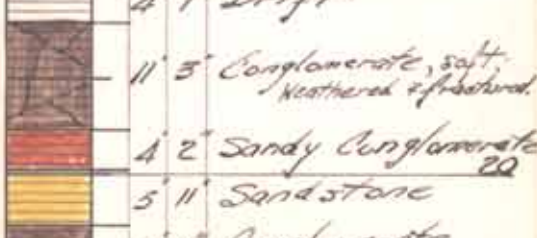 11' 3" Conglomerate, soft.
Weathered & fractured.
4' 2" Sandy Conglomerate
20
5' 11" Sandstone